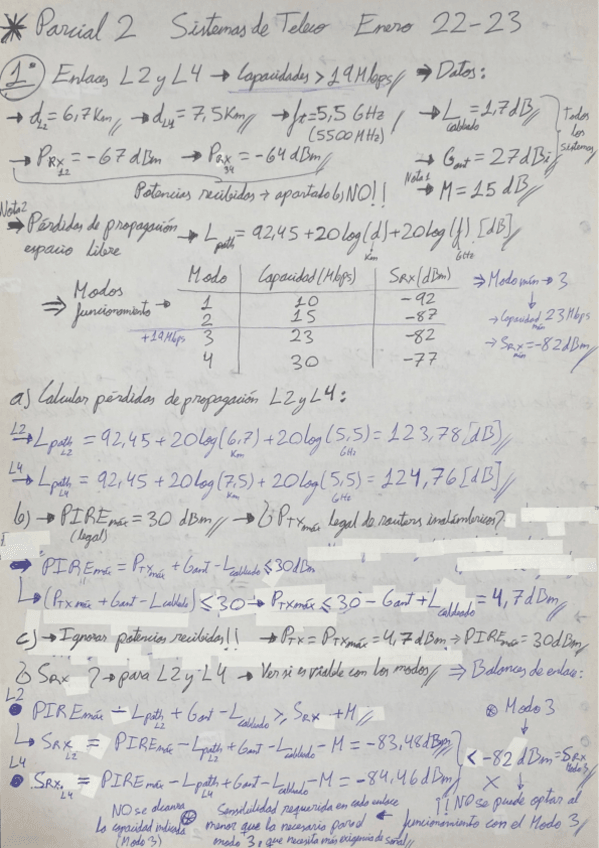 * Parcial 2 Sistemas de Teleco Enero 22-23
1º Enlaces L2 y L4 → Capacidades > 19 Mbps ⇒ Datos:
→ d_L2 = 6,7 Km → d_L4 = 7,5 Km → f_t = 5,5 GHz → L_cableado = 1,7 dB
(5500 MHz) Todos los sistemas
→ P_RX_12 = -67 dBm → P_RX_34 = -64 dBm → G_ant = 27 dBi
Potencias recibidas → apartado b) NO!! Nota 1 → M = 15 dB
Nota 2
⇒ Pérdidas de propagación espacio libre → L_path = 92,45 + 20log(d) + 20log(f) [dB]
Km GHz
Modo Capacidad (Mbps) S_RX (dBm)
⇒ Modos funcionamiento → 1 10 -92 ⇒ Modo mín → 3
2 15 -87 → Capacidad mín 23 Mbps
+19 Mbps 3 23 -82 → S_RX mín = -82 dBm
4 30 -77
a) Calcular pérdidas de propagación L2 y L4:
L2 → L_path_L2 = 92,45 + 20log(6,7) + 20log(5,5) = 123,78 [dB]
Km GHz
L4 → L_path_L4 = 92,45 + 20log(7,5) + 20log(5,5) = 124,76 [dB]
Km GHz
b) → PIRE_máx = 30 dBm → ¿P_TX_máx legal de routers inalámbricos?
(legal)
⇒ PIRE_máx = P_TX_máx + G_ant - L_cableado ≤ 30 dBm
↳ (P_TX máx + G_ant - L_cableado) ≤ 30 → P_TX máx ≤ 30 - G_ant + L_cableado = 4,7 dBm
c) → Ignorar potencias recibidas!! → P_TX = P_TX máx = 4,7 dBm → PIRE_máx = 30 dBm
¿S_RX? → para L2 y L4 → Ver si es viable con los modos ⇒ Balances de enlace:
L2
• PIRE_máx - L_path_L2 + G_ant - L_cableado ≥ S_RX + M ⊗ Modo 3
↳ S_RX_L2 = PIRE_máx - L_path_L2 + G_ant - L_cableado - M = -83,48 dBm
< -82 dBm = S_RX Modo 3
L4
• S_RX_L4 = PIRE_máx - L_path_L4 + G_ant - L_cableado - M = -84,46 dBm ×
NO se alcanza la capacidad indicada (Modo 3)
Sensibilidad requerida en cada enlace menor que la necesaria para el modo 3, que necesita más exigencia de señal
¡¡NO se puede optar al funcionamiento con el Modo 3